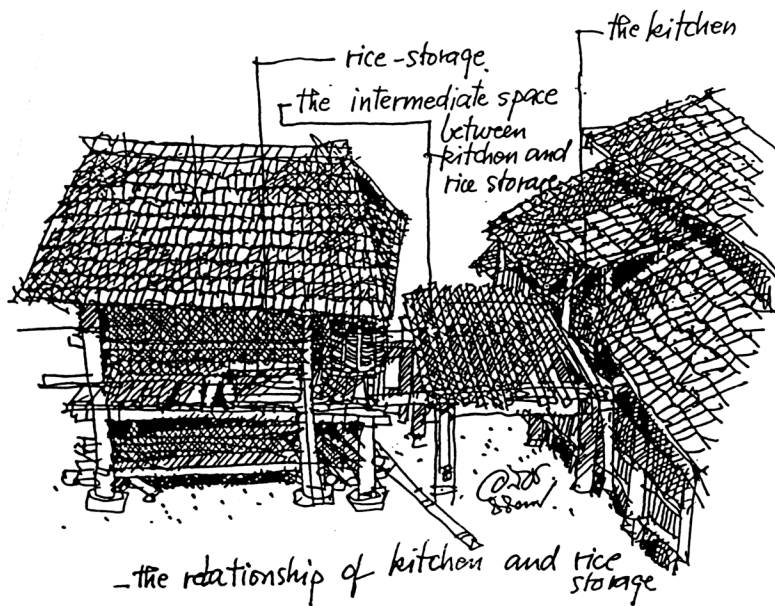 the kitchen
rice-storage.
the intermediate space
between
kitchen and
rice storage
the relationship of kitchen and rice
storage